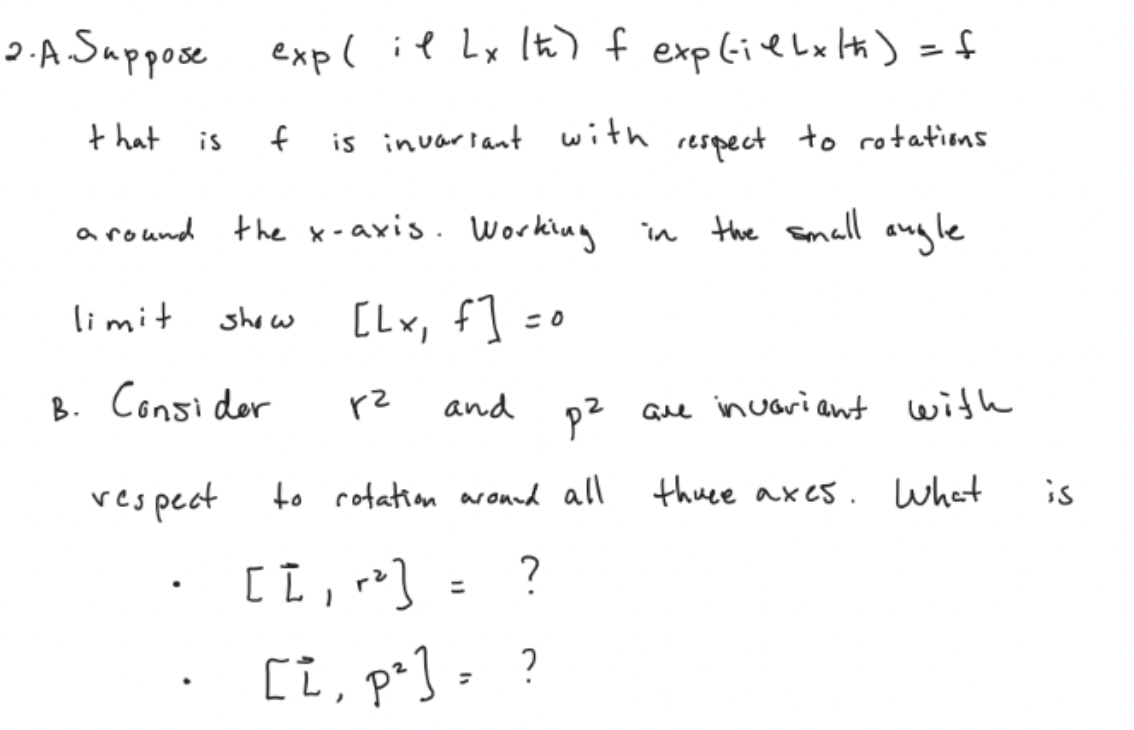 2.A. Suppose exp( i ℓ Lx /ħ) f exp(-i ℓ Lx/ħ) = f
that is f is invariant with respect to rotations
around the x-axis. Working in the small angle
limit show [Lx, f] = 0
B. Consider r² and p² are invariant with
respect to rotation around all three axes. What is
· [L⃗, r²] = ?
· [L⃗, p²] = ?